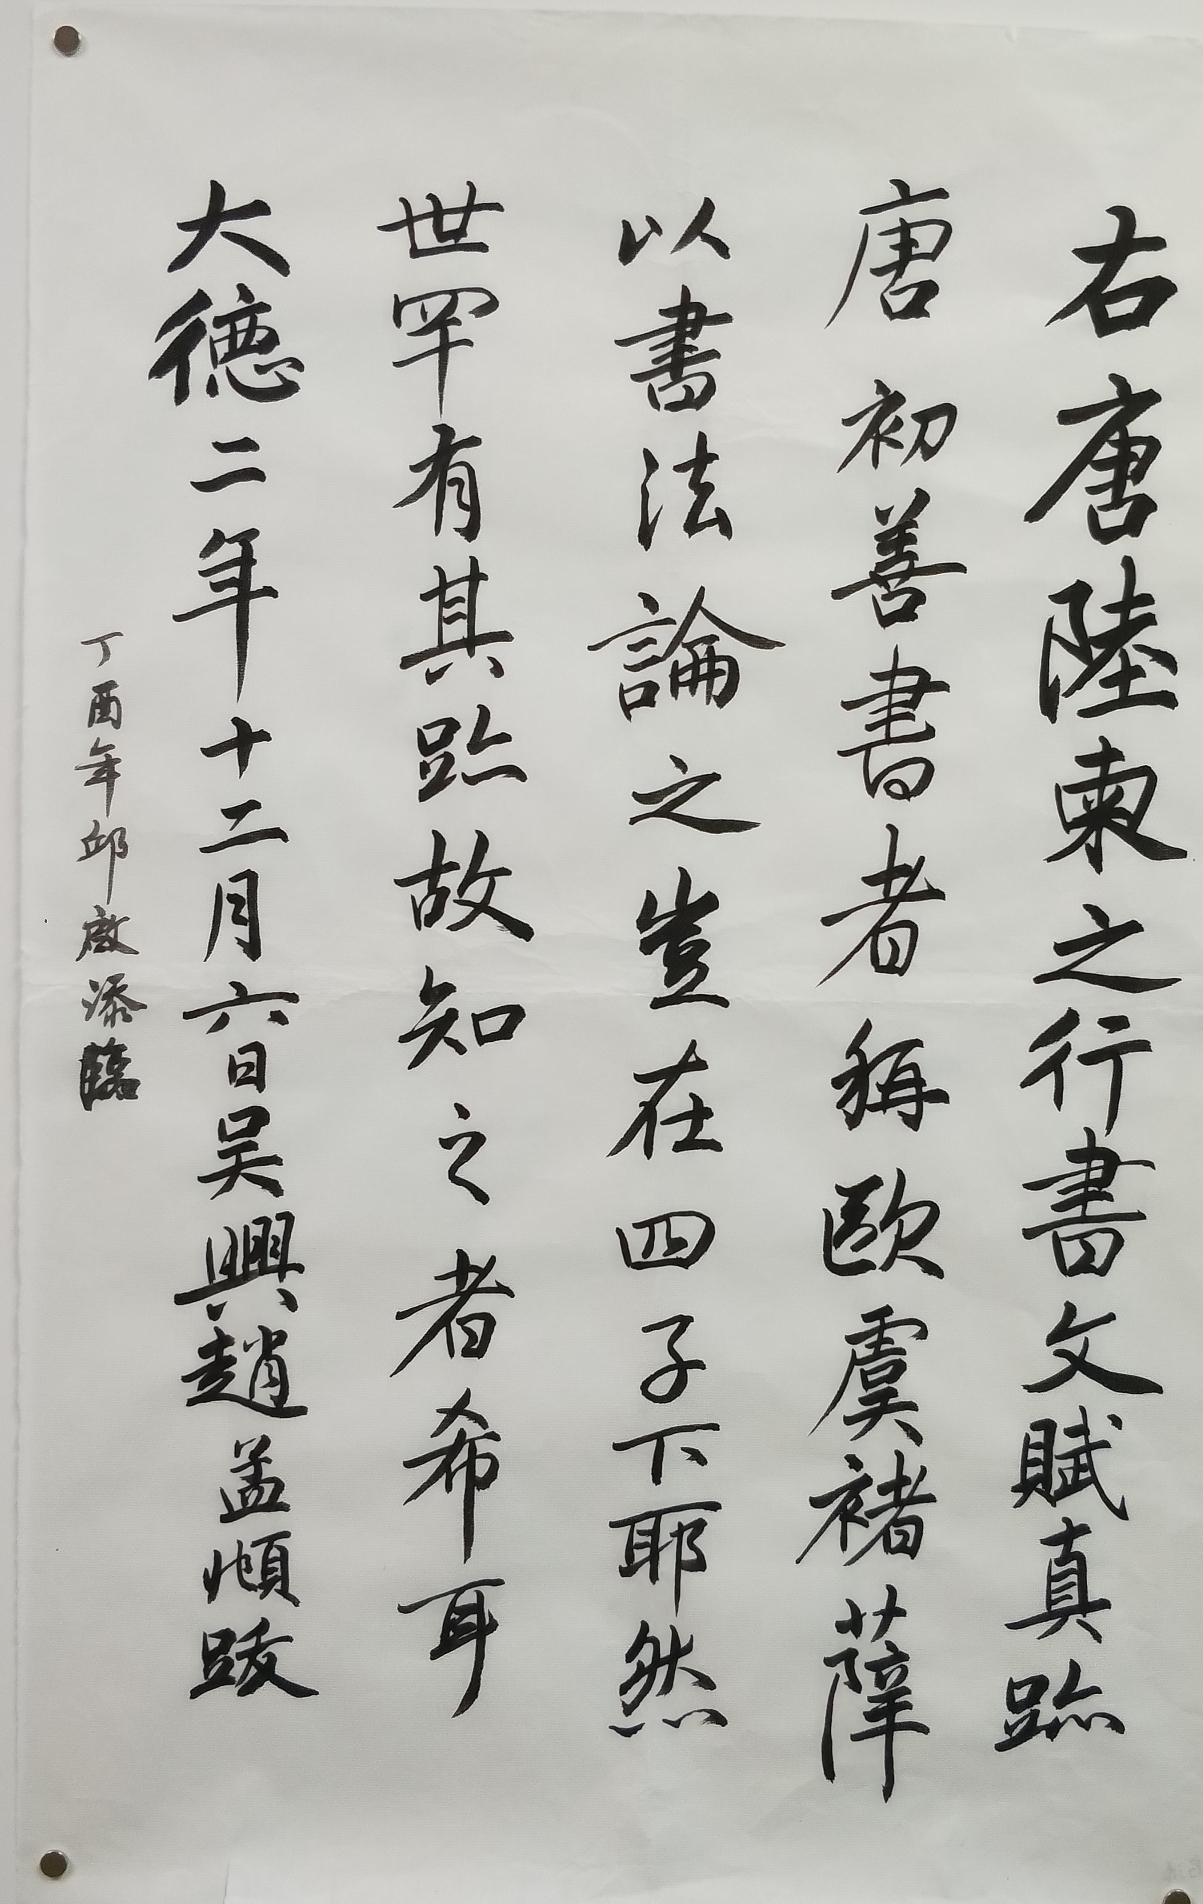 右唐陸柬之行書文賦真跡
唐初善書者稱歐虞褚薛
以書法論之豈在四子下耶然
世罕有其跡故知之者希耳
大德二年十二月六日吴興趙孟頫跋
丁酉年邱啟添臨